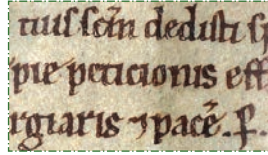 tuis scm̄ dedisti sp
pie peticionis eff
rgiaris ⁊ pacē. P.